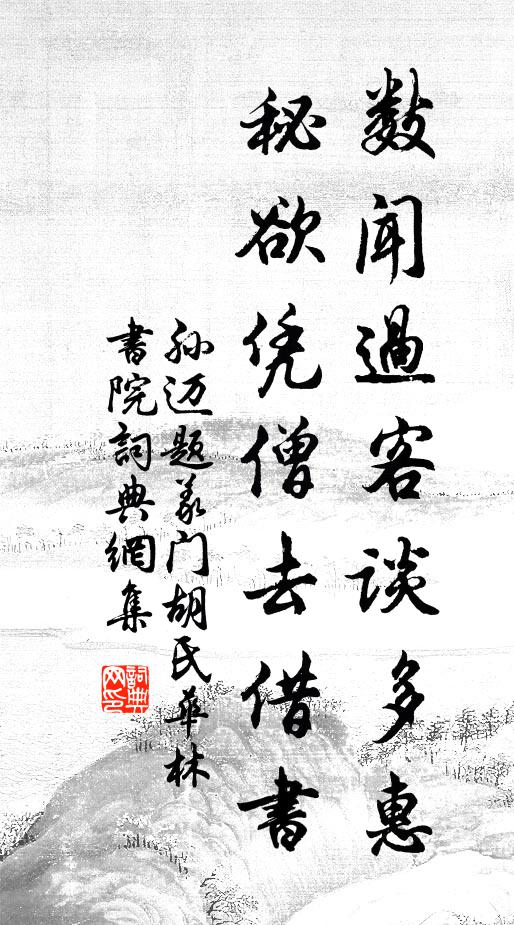 数闻過客谈多惠
秘欲凭僧去借書
孙迈题义门胡氏華林
書院詞典網集
詞典
网印